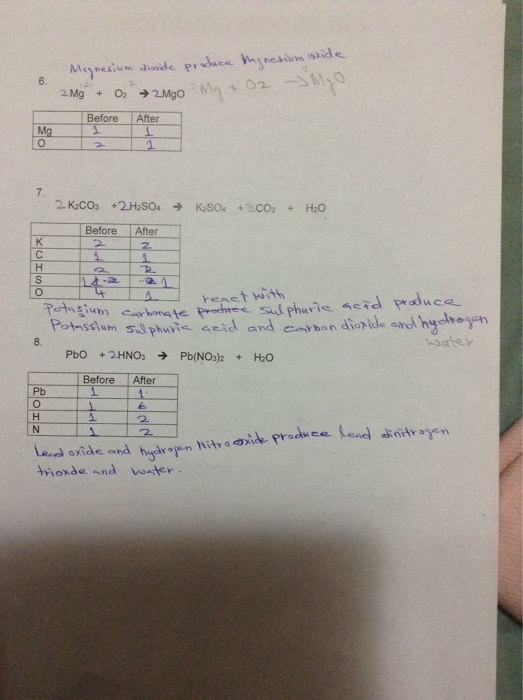 Megnesium dioxide produce Magnesium oxide
6.
2 Mg + O₂ → 2MgO 2Mg + O2 → MgO
Before After
Mg 1 1
O 2 1
7.
2 K₂CO₃ +2H₂SO₄ → K₂SO₄ + CO₂ + H₂O
Before After
K 2 2
C 1 1
H 2 2
S 1 1
O 4 1
react with
Potasium carbonate produce sulphuric acid produce
Potassium sulphuric acid and carbon dioxide and hydrogen
water
8.
PbO + 2HNO₃ → Pb(NO₃)₂ + H₂O
Before After
Pb 1 1
O 1 6
H 1 2
N 1 2
Lead oxide and hydrogen Nitro oxide produce lead dinitrogen
trioxde and water.